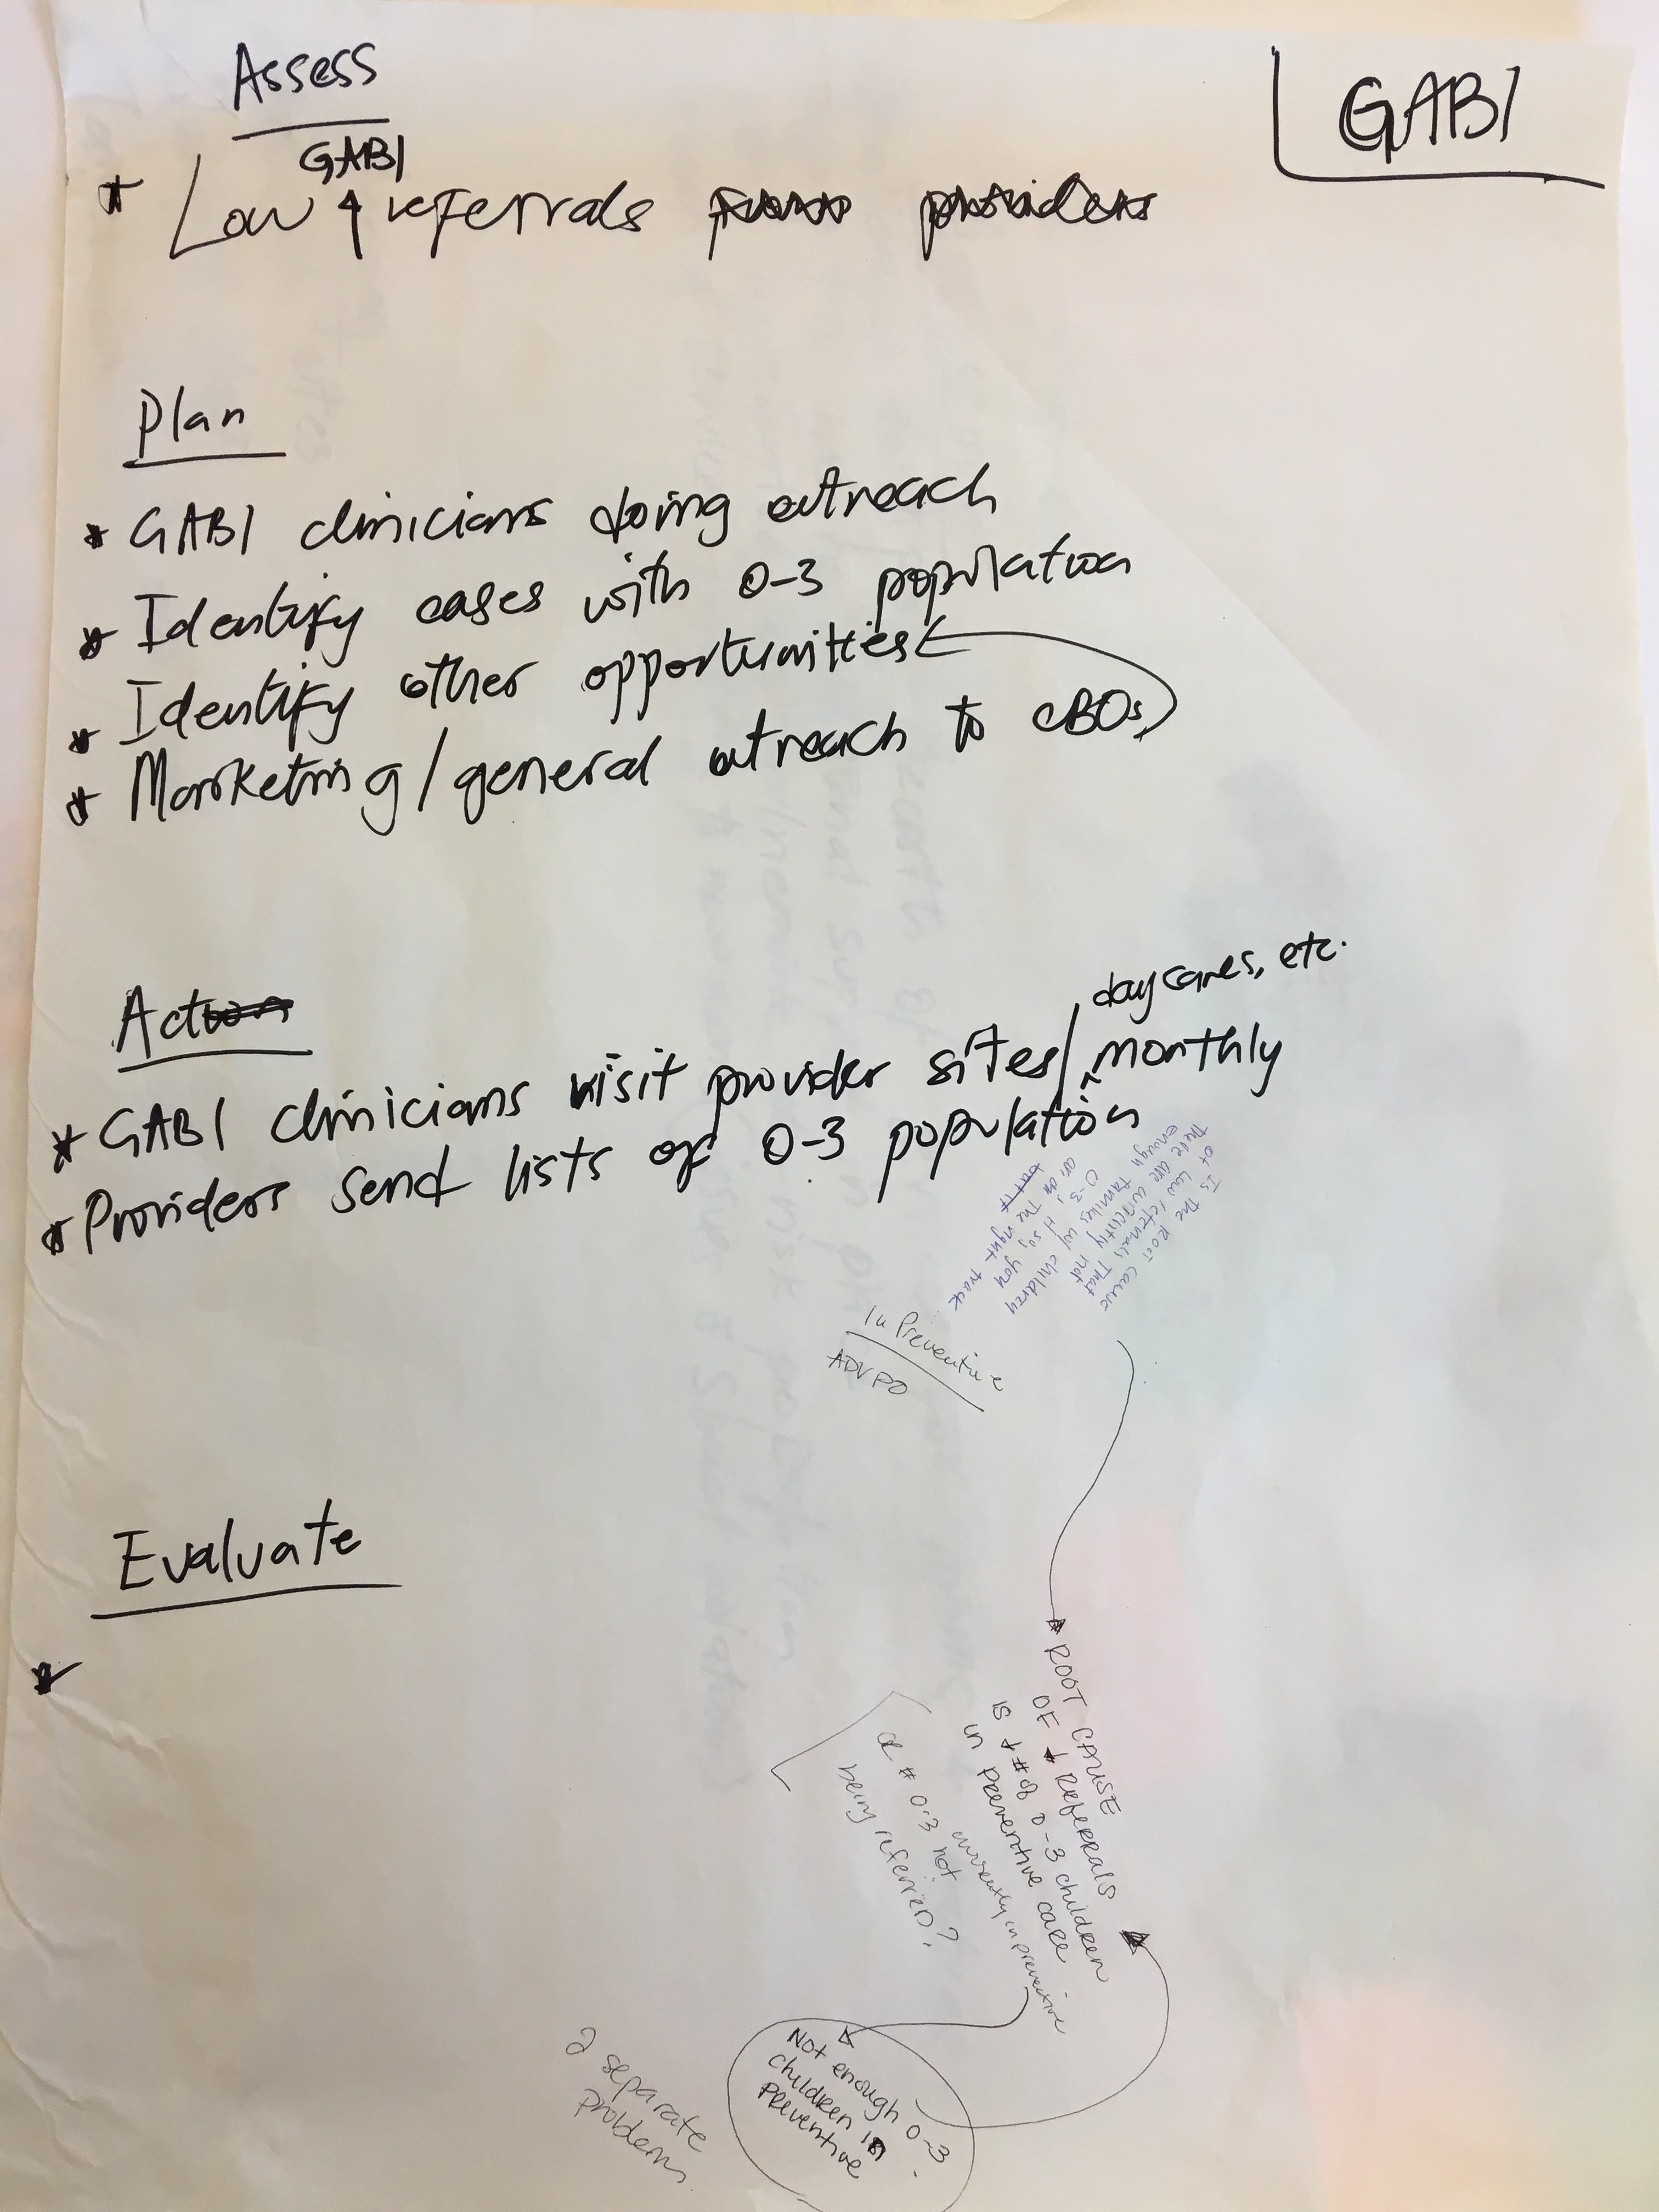 Assess
GABI
GABI
* Low referrals from providers
Plan
* GABI clinicians doing outreach
* Identify cases with 0-3 population
* Identify other opportunities
* Marketing/general outreach to CBOs
Action
daycares, etc.
* GABI clinicians visit provider sites/ monthly
* Providers send lists of 0-3 population
Is the root cause
of low referrals that
there are actually not
enough families w/ children
0-3, if so, you
are on the right track
but if
In Preventive
ADVPO
Evaluate
*
ROOT CAUSE
OF ↓ Referrals
is ↓ # of 0-3 children
in preventive care
currently in preventive
or # 0-3 not
being referred?
Not enough 0-3
children in
preventive
2 separate
problems